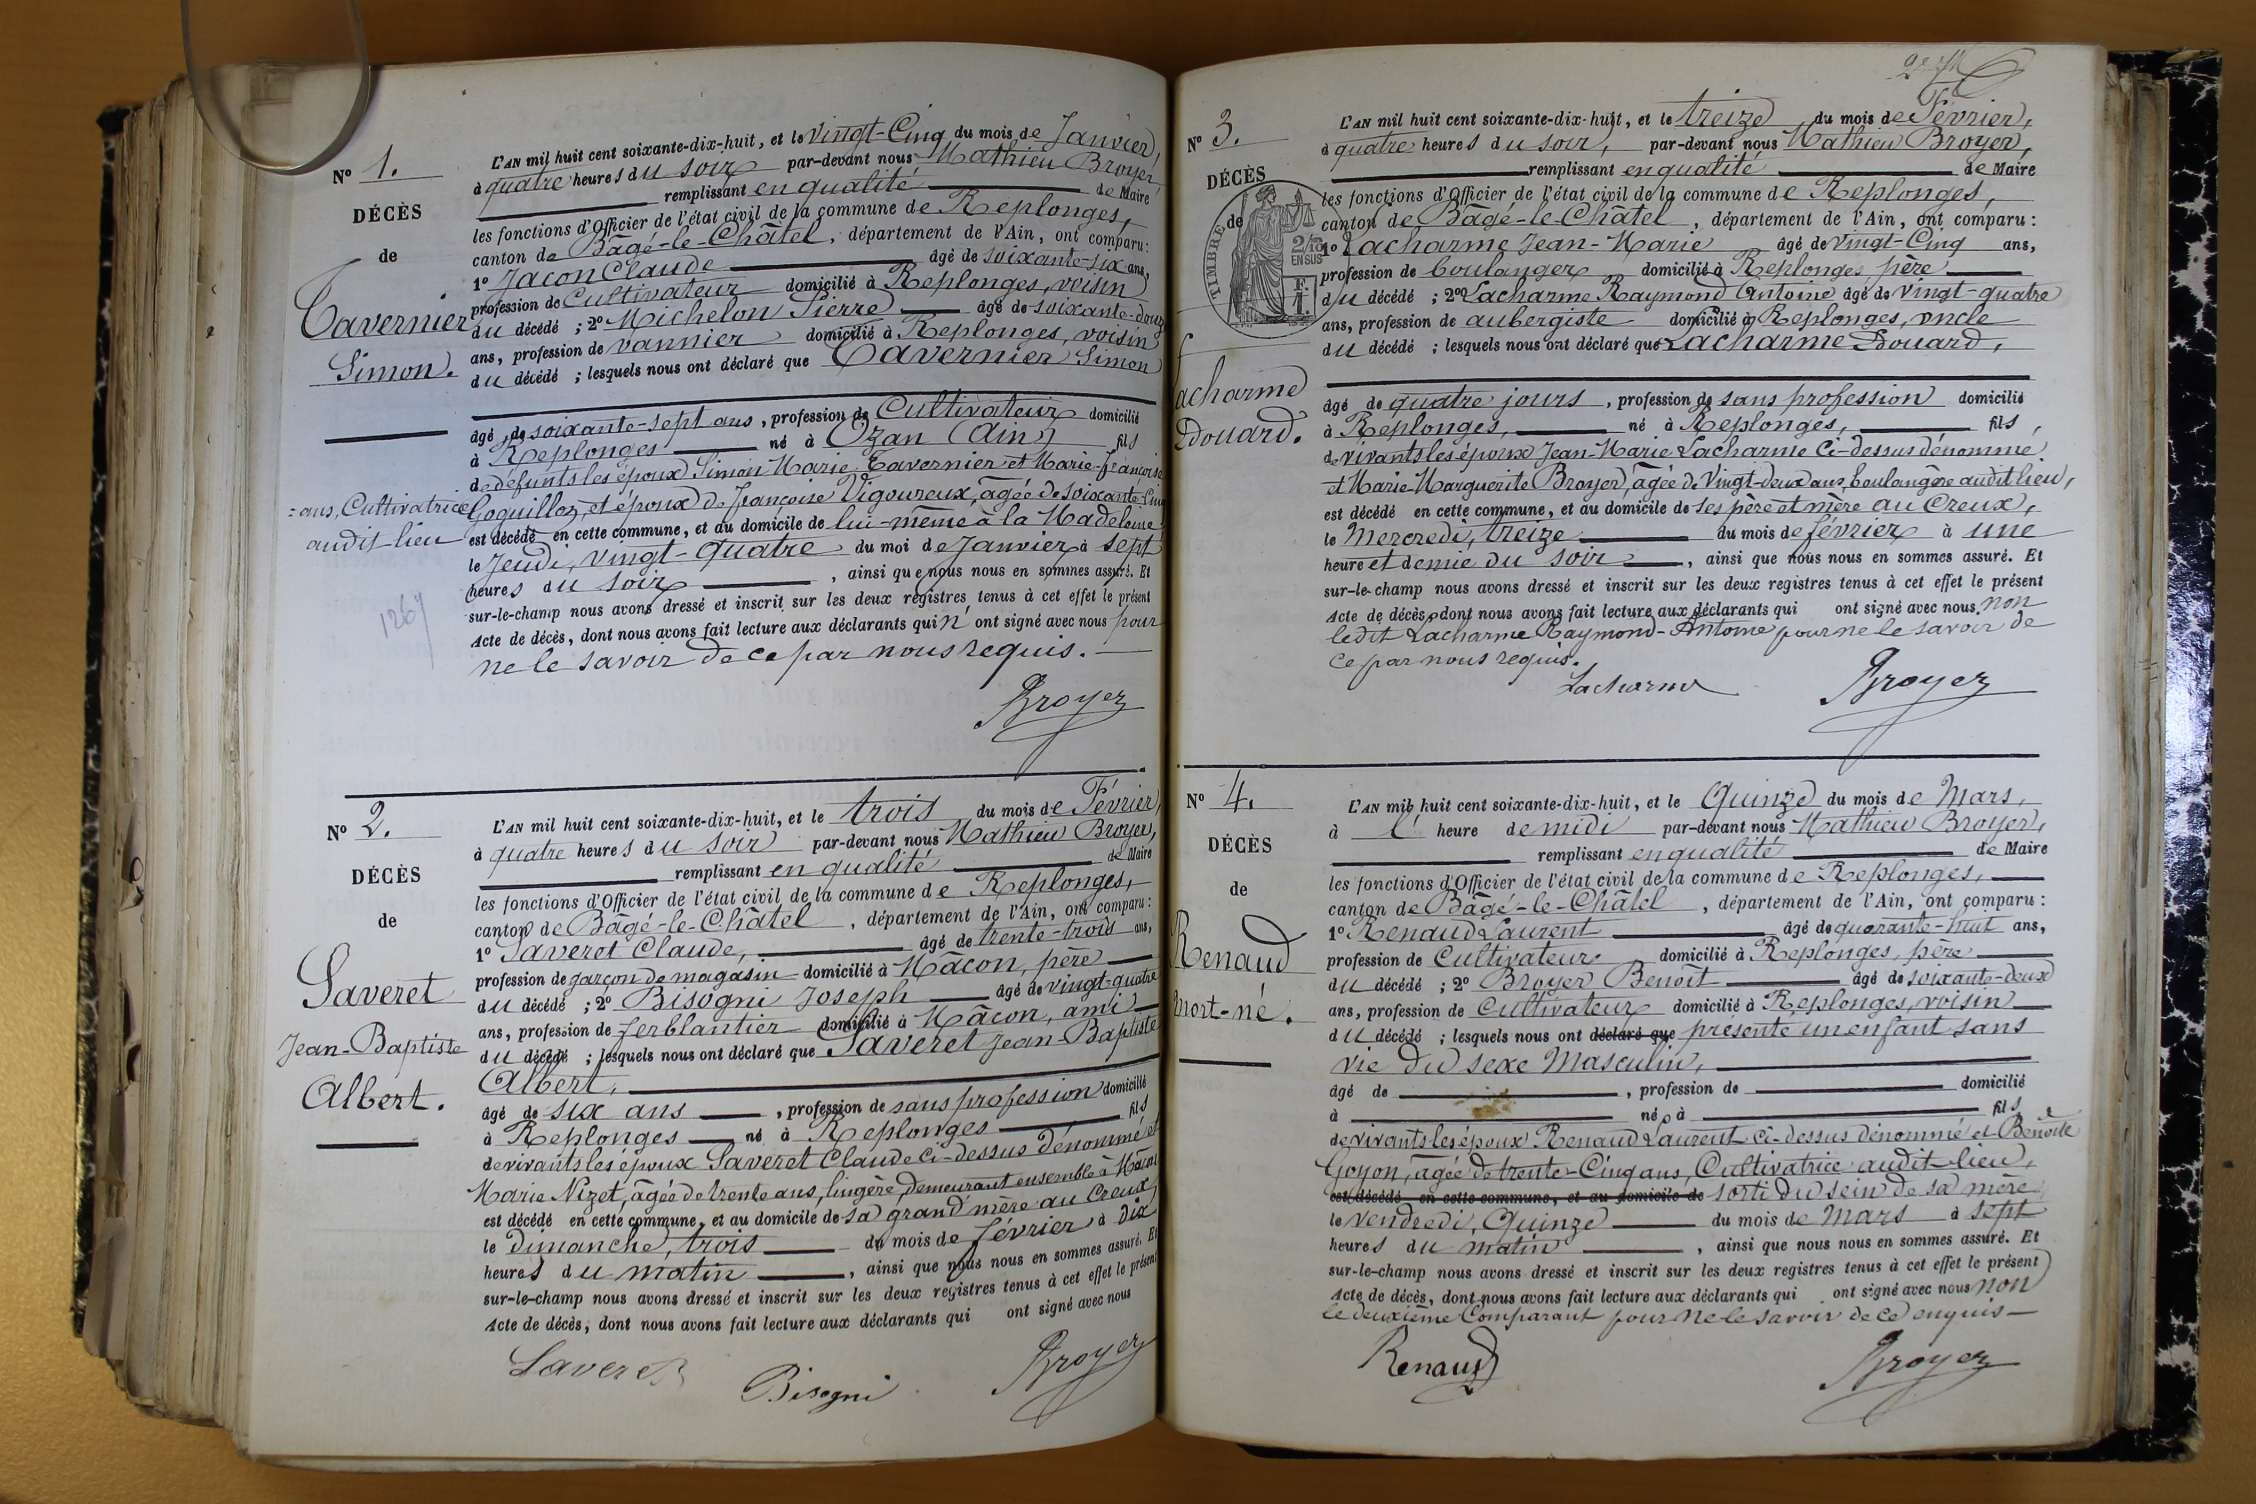 N° 1.
DÉCÈS
de
Tavernier
Simon.
L'AN mil huit cent soixante-dix-huit, et le vingt-Cinq du mois de Janvier,
à quatre heures du soir par-devant nous Mathieu Broyer,
remplissant en qualité de Maire
les fonctions d'Officier de l'état civil de la commune de Replonges,
canton de Bâgé-le-Châtel, département de l'Ain, ont comparu:
1° Jacon Claude âgé de soixante-six ans,
profession de Cultivateur domicilié à Replonges, voisin
du décédé ; 2° Michelon Pierre âgé de soixante-douze
ans, profession de vannier domicilié à Replonges, voisin
du décédé ; lesquels nous ont déclaré que Tavernier Simon
âgé de soixante-sept ans, profession de Cultivateur domicilié
à Replonges né à Ozan (Ain) fils
de défunts les époux Simon Marie Tavernier et Marie-Françoise
Coquillez, et époux de Françoise Vigoureux, âgée de soixante-Cinq
= ans, Cultivatrice
audit lieu
est décédé en cette commune, et au domicile de lui-même à la Madeleine
le Jeudi, vingt-quatre du moi de Janvier à sept
heures du soir , ainsi que nous nous en sommes assuré. Et
sur-le-champ nous avons dressé et inscrit sur les deux registres tenus à cet effet le présent
Acte de décès, dont nous avons fait lecture aux déclarants qui n' ont signé avec nous pour
ne le savoir de ce par nous requis.
1267
Broyer
N° 2.
DÉCÈS
de
Saveret
Jean-Baptiste
Albert.
L'AN mil huit cent soixante-dix-huit, et le trois du mois de Février,
à quatre heures du soir par-devant nous Mathieu Broyer,
remplissant en qualité de Maire
les fonctions d'Officier de l'état civil de la commune de Replonges,
canton de Bâgé-le-Châtel, département de l'Ain, ont comparu:
1° Saveret Claude, âgé de trente-trois ans,
profession de garçon de magasin domicilié à Mâcon, père
du décédé ; 2° Bisogni Joseph âgé de vingt-quatre
ans, profession de ferblantier domicilié à Mâcon, ami
du décédé ; lesquels nous ont déclaré que Saveret Jean-Baptiste
Albert,
âgé de six ans , profession de sans profession domicilié
à Replonges né à Replonges fils
de vivants les époux Saveret Claude Ci-dessus dénommé et
Marie Nizet, âgée de trente ans, lingère, demeurant ensemble à Mâcon
est décédé en cette commune, et au domicile de sa grand'mère au Creux
le dimanche, trois du mois de février à dix
heures du matin , ainsi que nous nous en sommes assuré. Et
sur-le-champ nous avons dressé et inscrit sur les deux registres tenus à cet effet le présent
Acte de décès, dont nous avons fait lecture aux déclarants qui ont signé avec nous
Saveret
Bisogni
Broyer
N° 3.
DÉCÈS
de
TIMBRE
2/10 EN SUS
F. 1.
Lacharme
Edouard.
L'AN mil huit cent soixante-dix-huit, et le treize du mois de Février,
à quatre heures du soir, par-devant nous Mathieu Broyer,
remplissant en qualité de Maire
les fonctions d'Officier de l'état civil de la commune de Replonges,
canton de Bâgé-le-Châtel, département de l'Ain, ont comparu:
1° Lacharme Jean-Marie âgé de vingt-Cinq ans,
profession de boulanger domicilié à Replonges, père
du décédé ; 2° Lacharme Raymond Antoine âgé de vingt-quatre
ans, profession de aubergiste domicilié à Replonges, oncle
du décédé ; lesquels nous ont déclaré que Lacharme Edouard,
âgé de quatre jours , profession de sans profession domicilié
à Replonges, né à Replonges, fils,
de vivants les époux Jean-Marie Lacharme Ci-dessus dénommé
et Marie-Marguerite Broyer, âgée de Vingt-deux ans, boulangère audit lieu,
est décédé en cette commune, et au domicile de ses père et mère au Creux,
le Mercredi, treize du mois de février à une
heure et demie du soir , ainsi que nous nous en sommes assuré. Et
sur-le-champ nous avons dressé et inscrit sur les deux registres tenus à cet effet le présent
Acte de décès, dont nous avons fait lecture aux déclarants qui ont signé avec nous non
ledit Lacharme Raymond-Antoine pour ne le savoir de
ce par nous requis.
Lacharme
Broyer
N° 4.
DÉCÈS
de
Renaud
Mort-né.
L'AN mil huit cent soixante-dix-huit, et le Quinze du mois de Mars,
à l' heure de midi par-devant nous Mathieu Broyer,
remplissant en qualité de Maire
les fonctions d'Officier de l'état civil de la commune de Replonges,
canton de Bâgé-le-Châtel, département de l'Ain, ont comparu:
1° Renaud Laurent âgé de quarante-huit ans,
profession de Cultivateur domicilié à Replonges, père
du décédé ; 2° Broyer Benoît âgé de soixante-deux
ans, profession de Cultivateur domicilié à Replonges, voisin
du décédé ; lesquels nous ont déclaré que présenté un enfant sans
vie du sexe Masculin,
âgé de , profession de domicilié
à né à fils
de vivants les époux Renaud Laurent ci-dessus dénommé et Benoîte
Goyon, âgée de trente-Cinq ans, Cultivatrice audit lieu,
est décédé en cette commune, et au domicile de sorti du sein de sa mère
le vendredi, Quinze du mois de Mars à sept
heures du matin , ainsi que nous nous en sommes assuré. Et
sur-le-champ nous avons dressé et inscrit sur les deux registres tenus à cet effet le présent
Acte de décès, dont nous avons fait lecture aux déclarants qui ont signé avec nous non
le deuxième Comparant pour ne le savoir de ce enquis
Renaud
Broyer